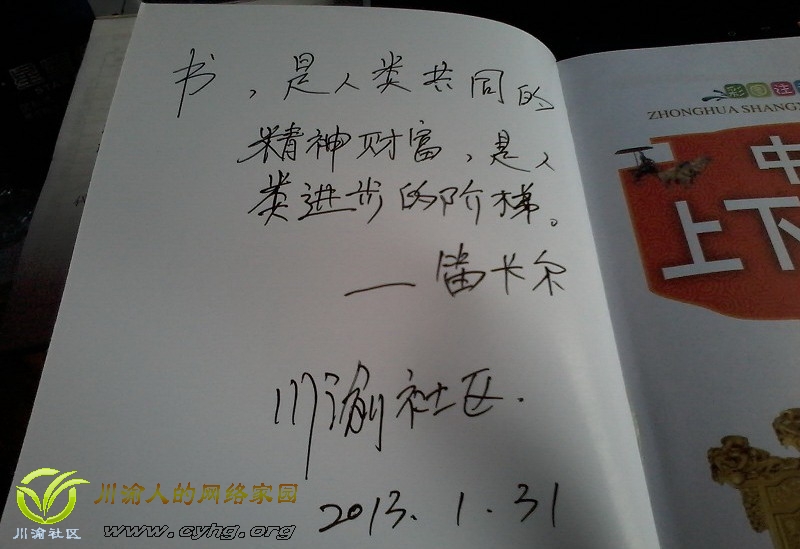 书，是人类共同的
精神财富，是人
类进步的阶梯。
— 笛卡尔
川渝社区.
2013. 1. 31
彩图注
ZHONGHUA SHANG
中
上下
川渝人的网络家园
川渝社区
www.cyhg.org